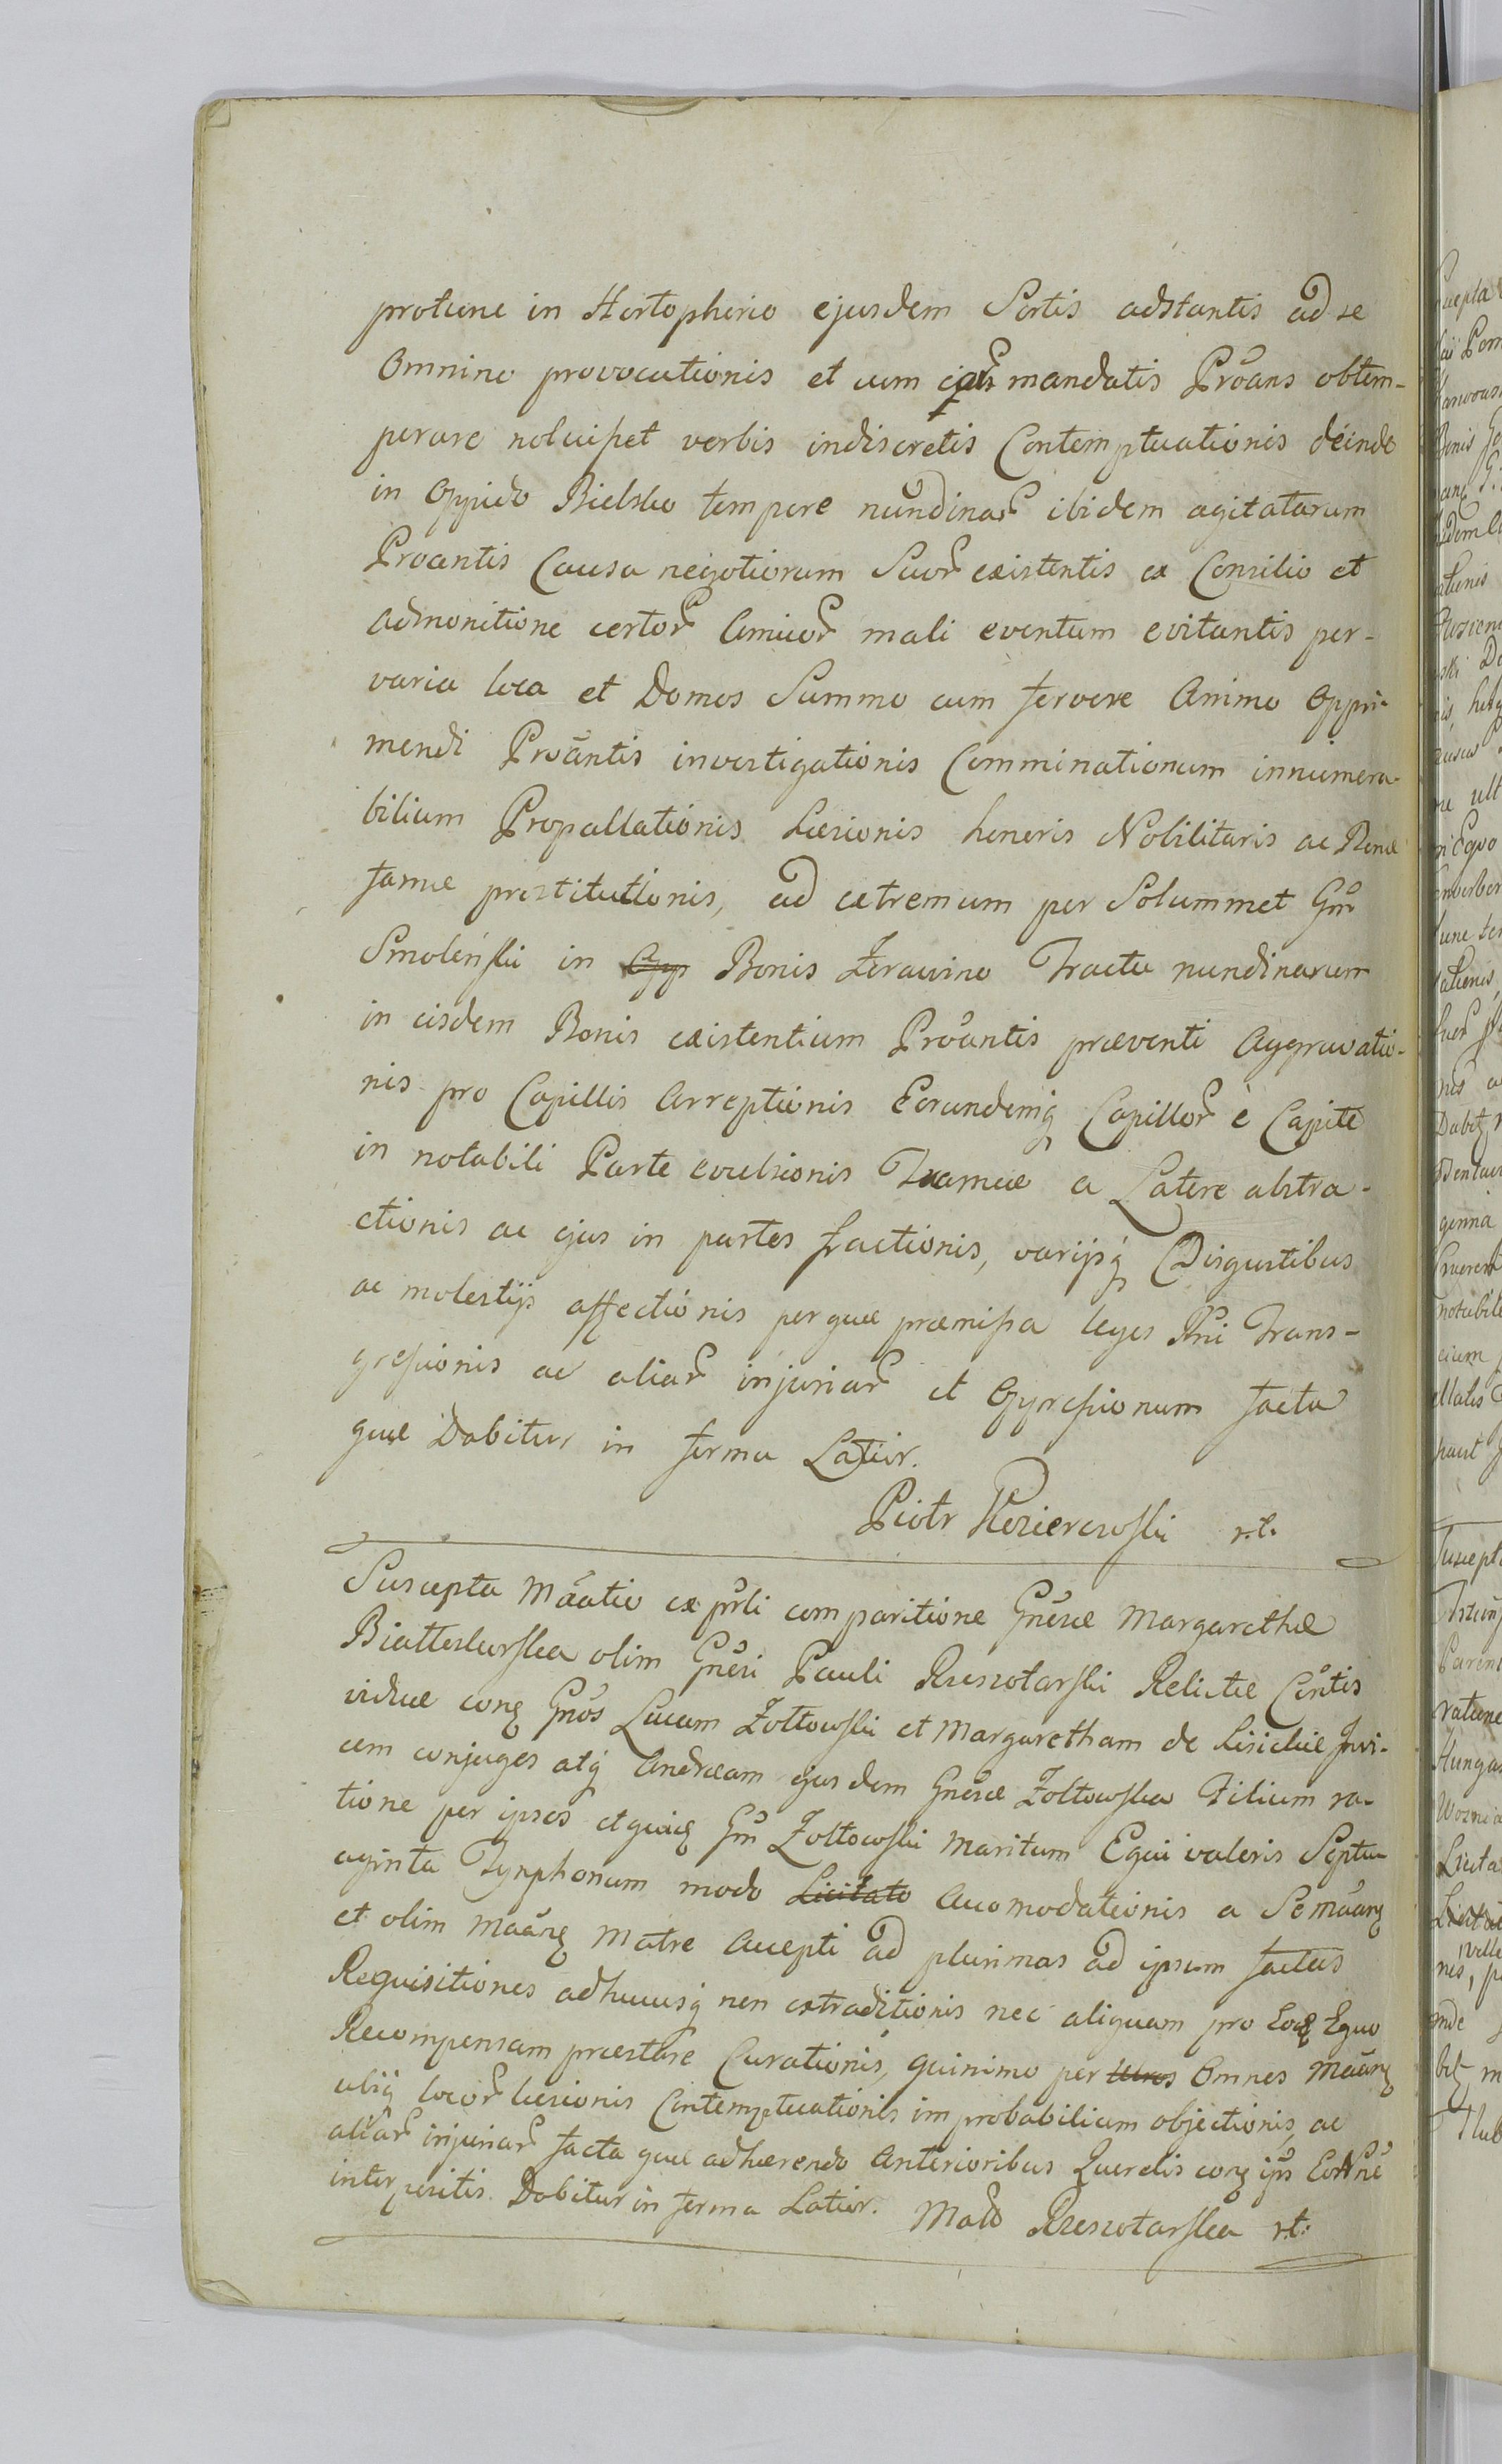 protunc in Hortopherio ejusdem Sortis adstantis ad se
Omnino provocationis et cum ejus mandatis Proãns obtem-
perare noluisset verbis indiscretis Contemptuationis deinde
in Oppido Bielsko tempore nundinar̃ ibidem agitatarum
Proantis Causa negotiorum Suor̃ existentis ex Consilio et
admonitione certor̃ Amicor̃ mali eventum evitantis per-
varia loca et Domos Summo cum fervore Animo Oppri-
mendi Proãntis investigationis Comminationum innumera-
bilium Propallationis Læsionis honoris Nobilitaris ac Bonæ
famæ prostitutionis, ad extremum per Solummet Gm̃
Smoleński in Bonis Zerawino Tractu nundinarum
in eisdem Bonis existentium Proãntis præventi Aggravatio-
nis pro Capillis Arreptionis Eorundemq́ Capillor̃ è Capite
in notabili Parte evulsionis Frameæ a Latere abstra-
ctionis ac ejus in partes fractionis, varijsq́ Disgustibus
ac molestijs affectionis per quæ præmissa leges Rñi Trans-
gressionis ac aliar̃ injuriar̃ et Oppressionum facta
quæ Dabitur in forma Latior.
Piotr Kozierowski r.t.
Suscepta Mãatio ex pr̃li comparitione Gñesæ Margarethæ
Białłeskurska olim Gñesi Pauli Rzeszotarski Relictæ Cõntis
viduæ conq́ Gños Lucam Zołtowski et Margaretham de Lisickie Invi-
cem conjuges atq́ Andream ejusdem Gñesæ Zołtowska Filium ra-
tione per ipsos Gm̃ Zołtowski Maritum Equi valoris Septu-
aginta Tynphonum modo Licitato Accomodationis a Se Mãanq́
et olim Mãanq́ Matre Accepti ad plurimas ad ipsum factas
Requisitiones adhucusq́ non extraditionis nec aliquam pro Eoq́ Equo
Recompensam præstare Curationis, quinimo per Omnes Mãanq́
ubiq́ locor̃ læsionis Contemptuationis improbabilium objectionis, ac
aliar̃ injuriar̃ facta quæ adhærendo Anterioribus Querelis conq́ ip̃s
interpositis. Dabitur in forma Latior. Rzeszotarska r.t.